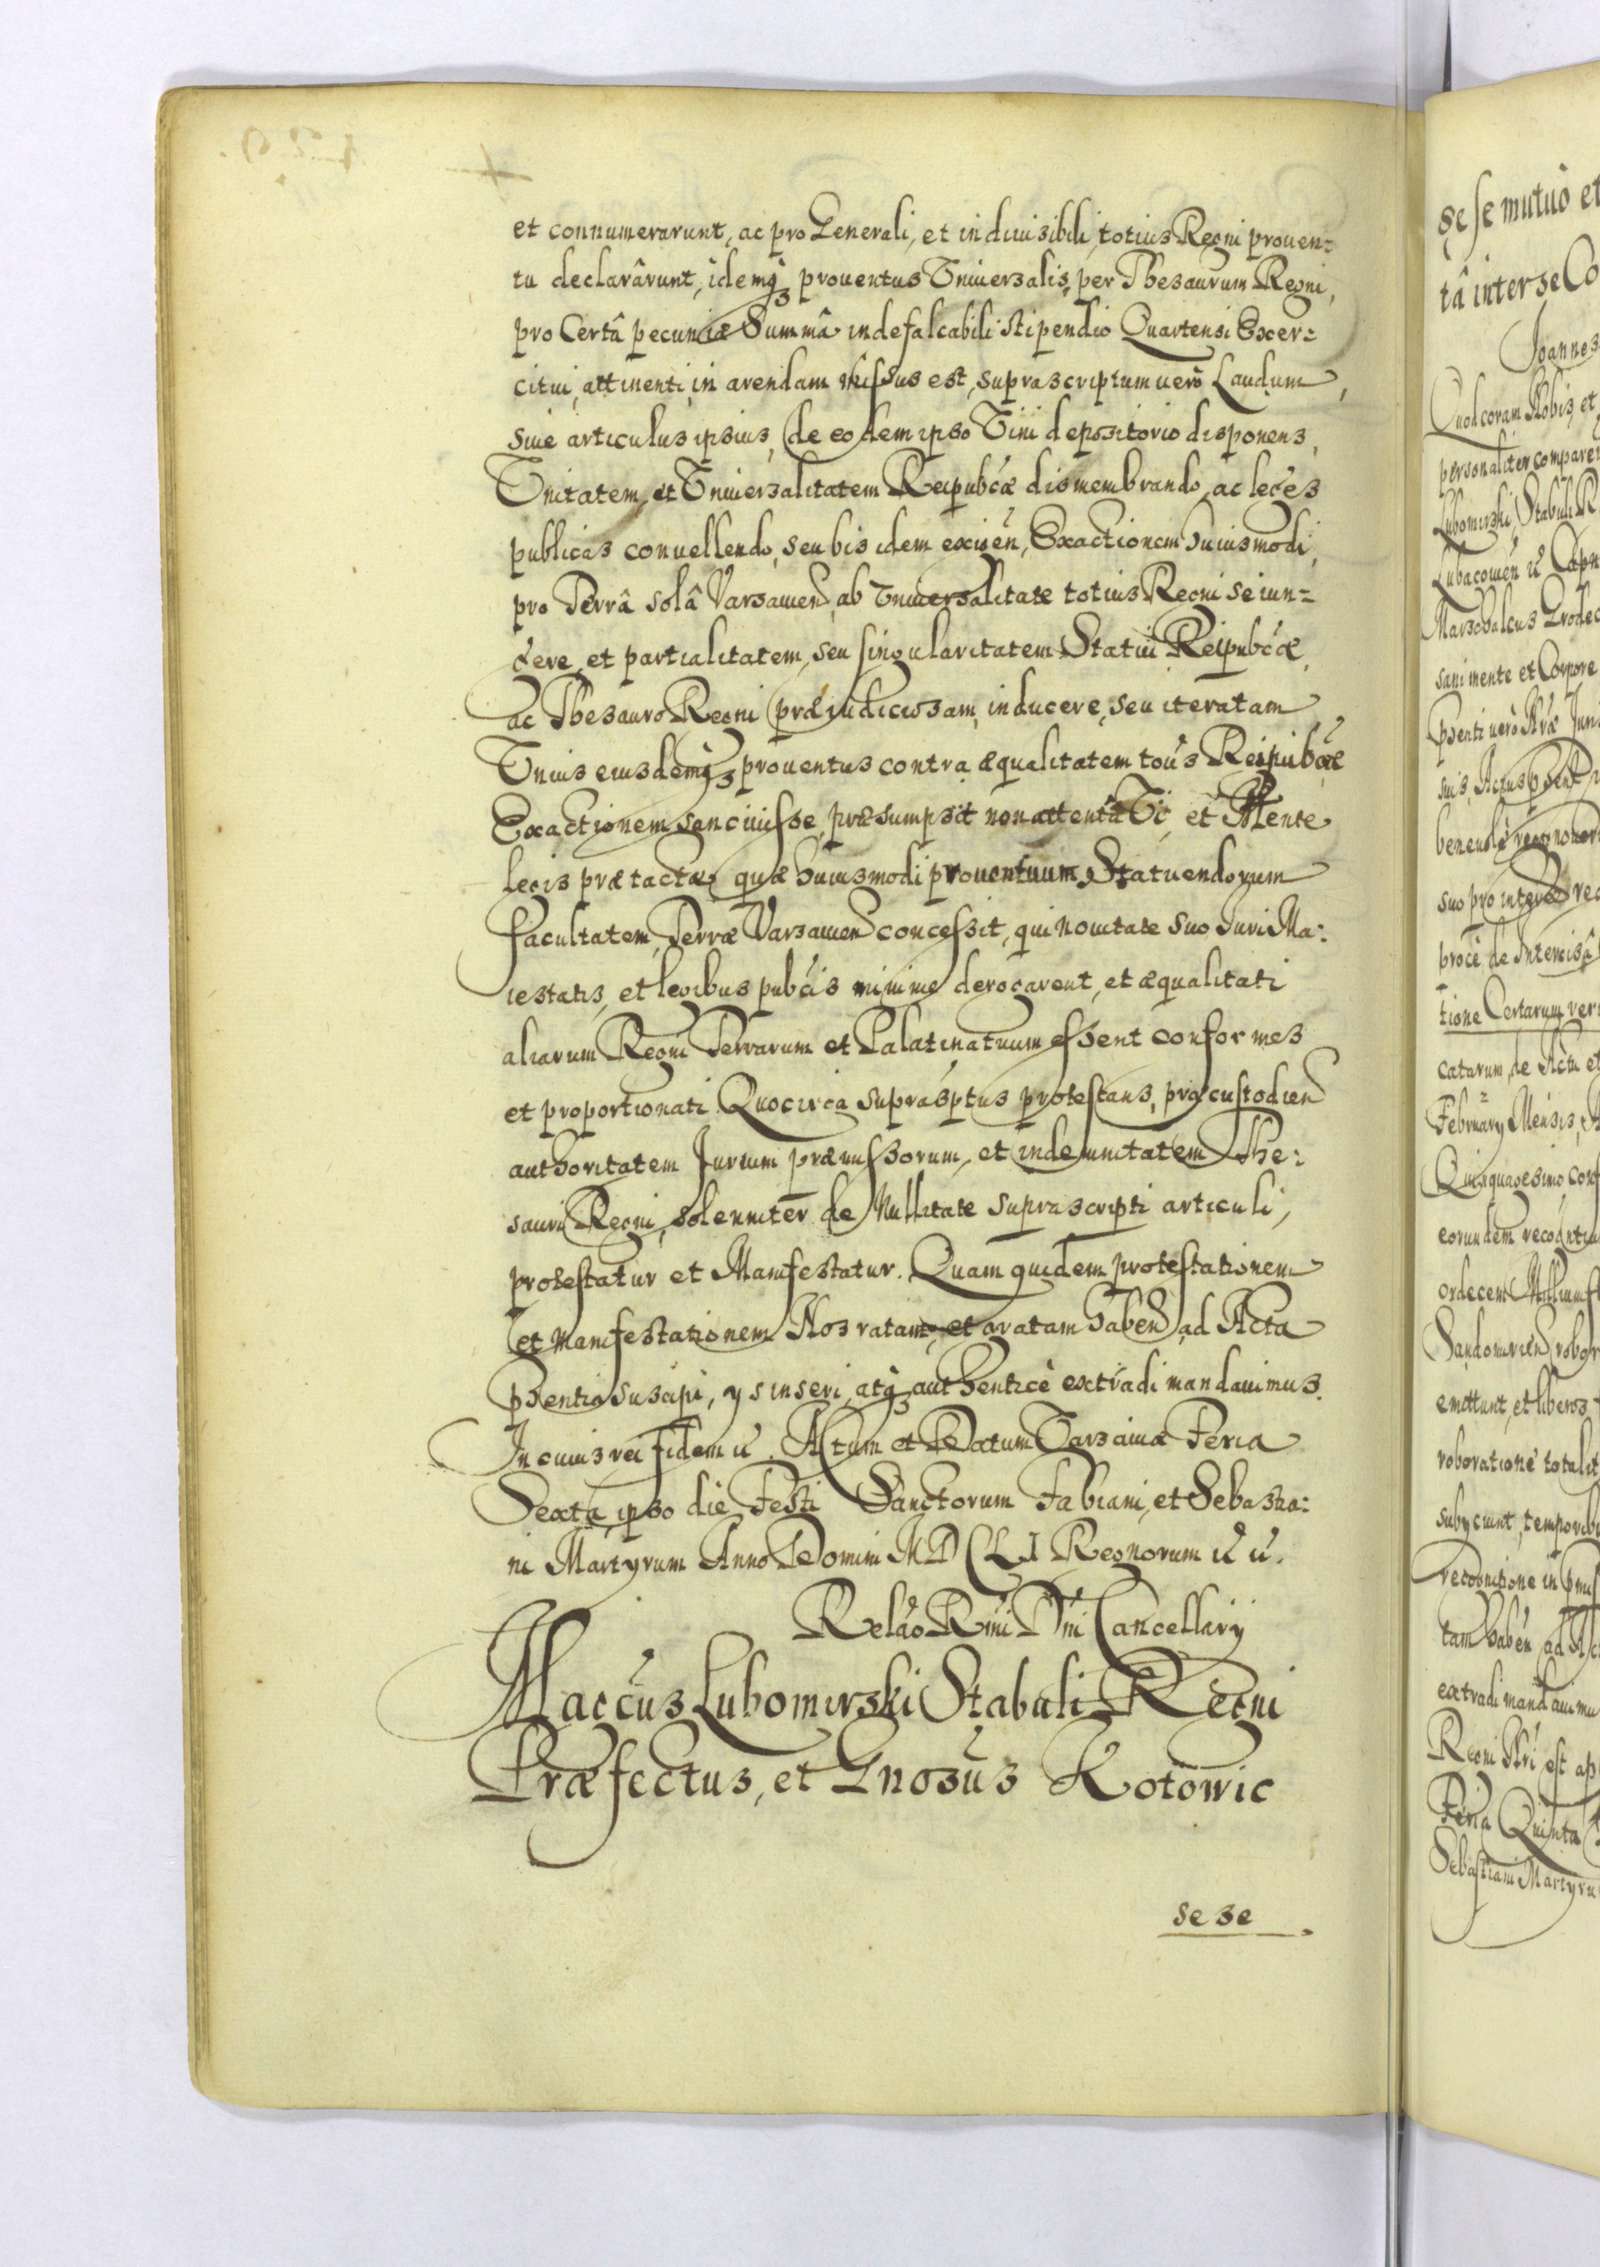 et connumerarunt, ac pro Generali, et indiuisibili, totius Regni prouen=
tu declarârunt, idemq₃ prouentus Vniuersalis, per Thesaurum Regni,
pro Certâ pecuniæ Summâ indefalcabili stipendio Quartensi Exer=
citui, attinenti, in arendam missus est, suprascriptum uerò Laudum,
siue articulus ipsius, de eodem ipso Vini depositorio disponens,
Vnitatem, et Vniuersalitatem Reipubcæ dismembrando, ac leges
publicas conuellendo, seu bis idem exigen, Exactionem huiusmodi,
pro Terrâ solâ Varsauien, ab Vniuersalitate totius Regni seiun=
gere, et partialitatem, seu singularitatem Statui Reipubcæ,
ac Thesauro Regni præiudiciosam, inducere, seu iteratam
Vnius eiusdemq₃ prouentus contra æqualitatem tous Reipubcæ
Exactionem sanciuisse, præsumpsit non attentâ Vi, et Mente
legis prætactæ, quæ huiusmodi prouentuum Statuendorum
facultatem, Terræ Varsauien concessit, qui nouitate suo Juri Ma:
iestatis, et legibus pubcis minime derogarent, et æqualitati
aliarum Regni Terrarum et Palatinatuum essent conformes
et proportionati. Quocirca suprasptus protestans, pro custodien
authoritatem Jurium præmissorum, et indemnitatem The:
sauri Regni, solenniter de Nullitate suprascripti articuli,
protestatur et Manifestatur. Quam quidem protestationem
et manifestationem Nos ratam, et gratam haben, ad Acta
pñentia suscipi, ijs inseri, atq₃ authenticè extradi mandauimus.
In cuius rei fidem &. Actum et Datum Varsauiæ Feria
Sexta ipso die Festi Sanctorum Fabiani, et Sebastia:
ni Martyrum Anno Domini MDCLI Regnorum & &.
Relão Rmi Dñi Cancellarij
Magcus Lubomirski Stabuli Regni
Præfectus, et Gnosus Kotowic
sese
sese mutuò et
tâ inter se Co
Joannes
Quod coram Nobis, et
personaliter comparen
Lubomirski, Stabuli R
Marschalcus Grodec
sani mente et Corpore
suo pro
tione Certarum
catarum, de Actu et
February Mensis, A
Quinquagesimo
eorundem
emittunt, et liberos
roboratione totalit
subijciunt, temporibu
recognitione in
tam haben, ad Ac
extradi mandauimu
Regni Nri est ap
Feria Quinta
Sebastiani Martyru